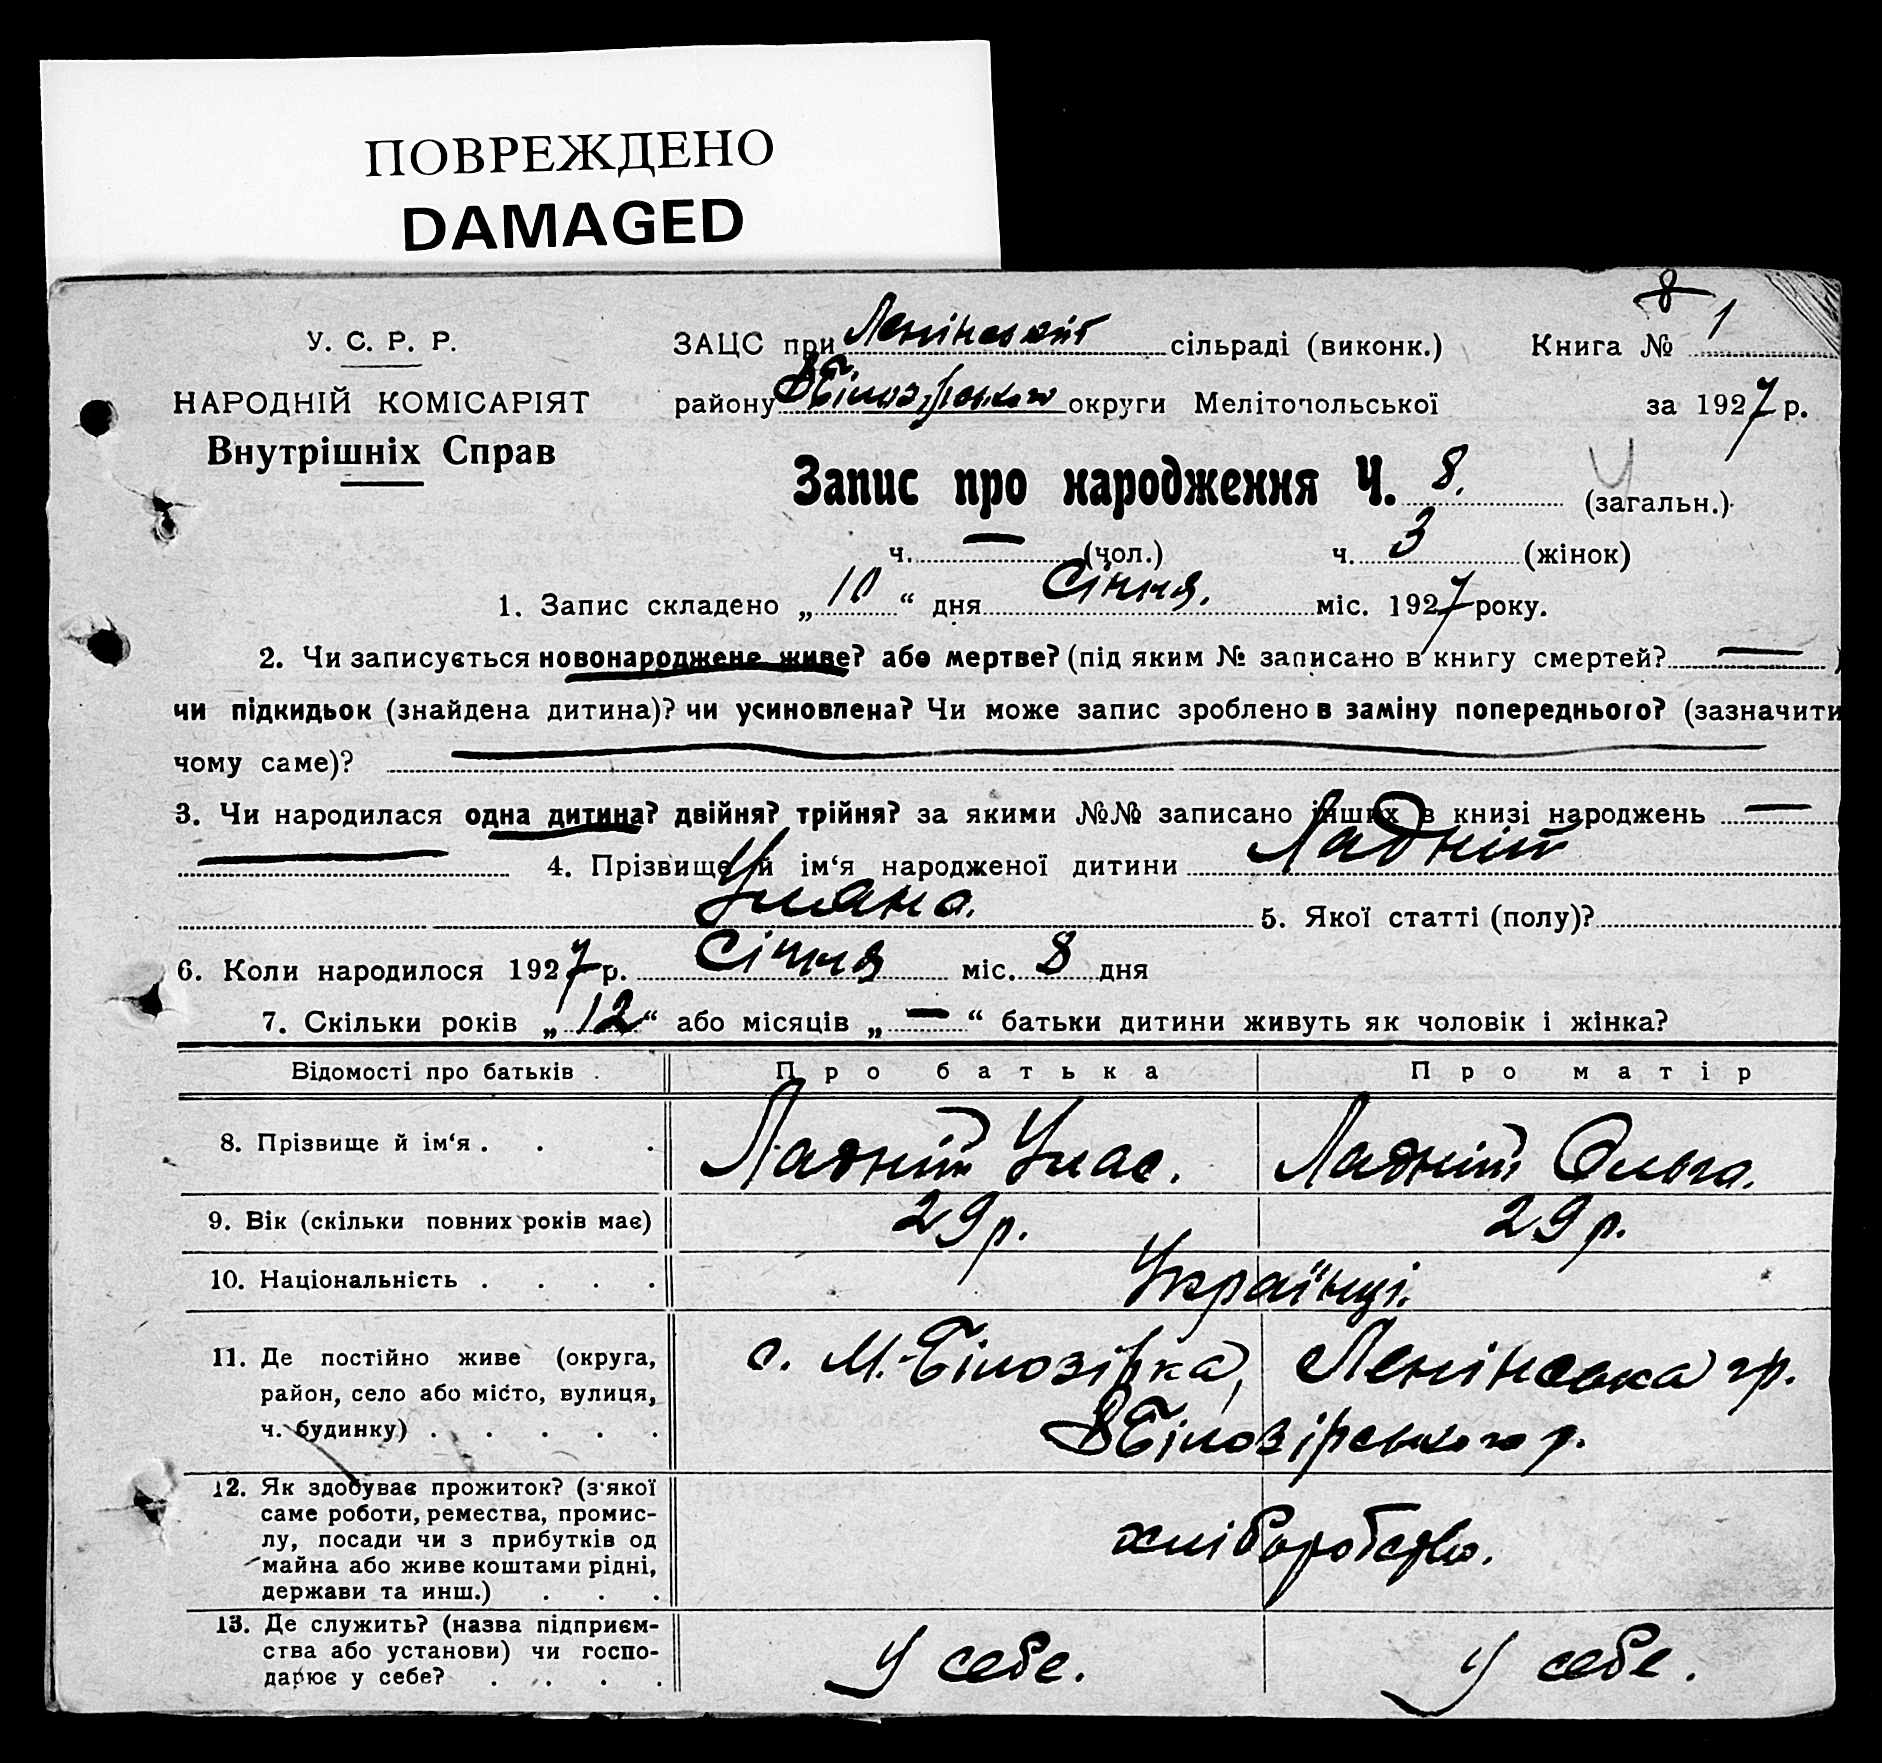 ПОВРЕЖДЕНО
DAMAGED
8
У. С. Р. Р. ЗАЦС при Ленінській сільраді (виконк.) Книга № 1
НАРОДНІЙ КОМІСАРІЯТ району ВБілозірського округи Мелітопольської за 1927 р.
Внутрішніх Справ
Запис про народження Ч. 8. (загальн.)
ч. — (чол.) ч. 3 (жінок)
1. Запис складено „10“ дня Січня. міс. 1927 року.
2. Чи записується новонароджене живе? або мертве? (під яким № записано в книгу смертей? — )
чи підкидьок (знайдена дитина)? чи усиновлена? Чи може запис зроблено в заміну попереднього? (зазначити
чому саме)?
3. Чи народилася одна дитина? двійня? трійня? за якими №№ записано інших в книзі народжень —
— 4. Прізвище й ім‘я народженої дитини Ладній
Уляна. 5. Якої статті (полу)?
6. Коли народилося 1927 р. Січня міс. 8 дня
7. Скільки років „12“ або місяців „—“ батьки дитини живуть як чоловік і жінка?
Відомості про батьків Про батька Про матір
8. Прізвище й ім‘я . . . Ладній Улас. Ладній Ольга.
9. Вік (скільки повних років має) 29 р. 29 р.
10. Національність . . . . Українці.
11. Де постійно живе (округа, с. М.-Білозірка, Ленінська гр.
район, село або місто, вулиця,
ч. будинку) . . . . . ВБілозірського р.
12. Як здобуває прожиток? (з'якої
саме роботи, ремества, промис-
лу, посади чи з прибутків од хліборобство.
майна або живе коштами рідні,
держави та инш.) . . .
13. Де служить? (назва підприєм-
ства або установи) чи госпо- У себе. У себе.
дарює у себе? . . . .